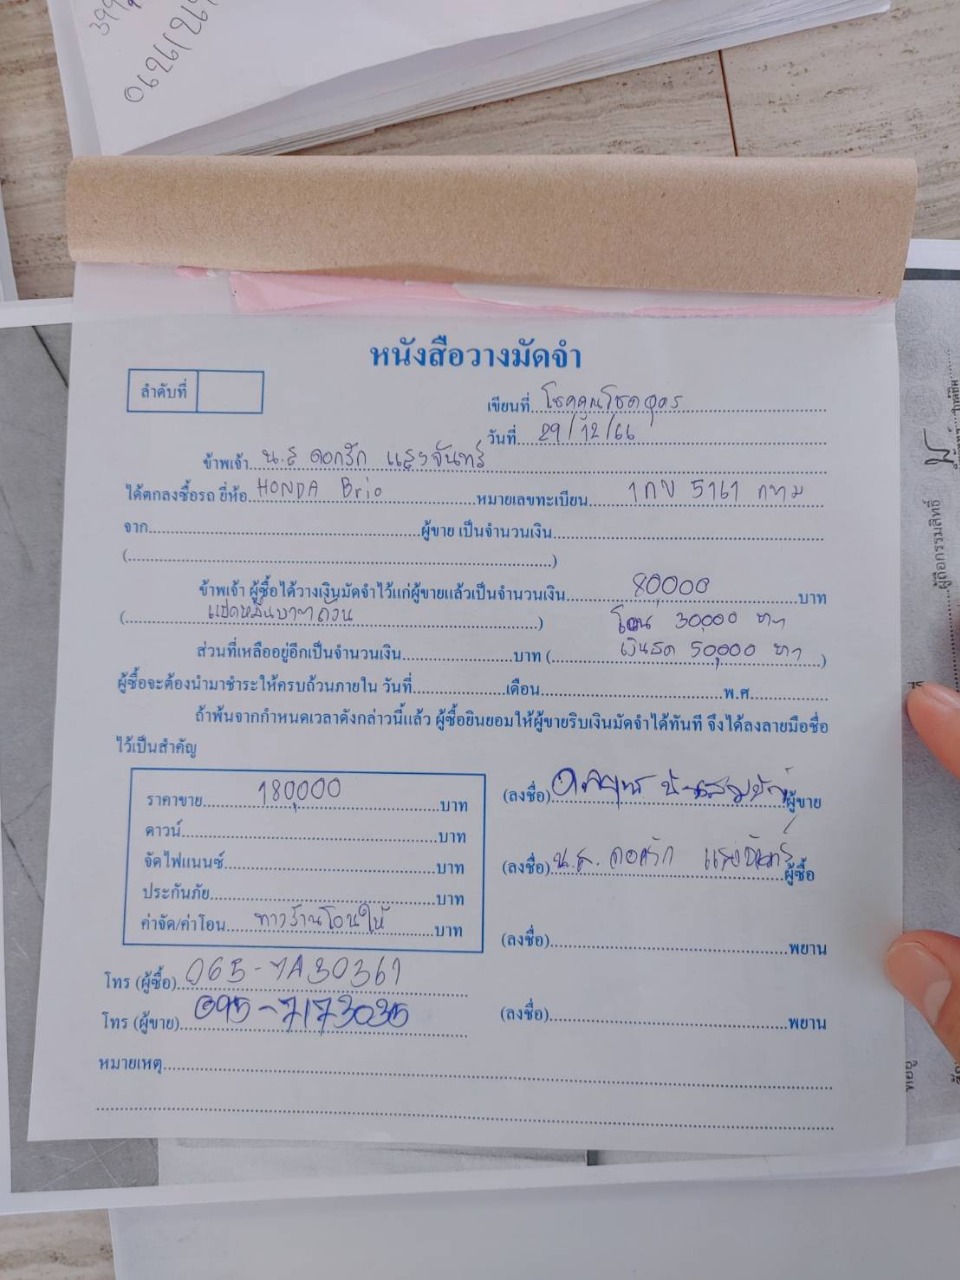 0626121990
หนังสือวางมัดจำ
ลำดับที่
เขียนที่ โชคคูณโชคอุดร
วันที่ 29/12/66
ข้าพเจ้า น.ส ดอกรัก แสงจันทร์
ได้ตกลงซื้อรถ ยี่ห้อ HONDA Brio หมายเลขทะเบียน 1กข 5161 กทม
จาก ผู้ขาย เป็นจำนวนเงิน
( )
ข้าพเจ้า ผู้ซื้อได้วางเงินมัดจำไว้แก่ผู้ขายแล้วเป็นจำนวนเงิน 80000 บาท
( แปดหมื่นบาทถ้วน ) โอน 30,000 บาท
เงินสด 50,000 บาท
ส่วนที่เหลืออยู่อีกเป็นจำนวนเงิน บาท ( )
ผู้ซื้อจะต้องนำมาชำระให้ครบถ้วนภายใน วันที่ เดือน พ.ศ.
ถ้าพ้นจากกำหนดเวลาดังกล่าวนี้แล้ว ผู้ซื้อยินยอมให้ผู้ขายริบเงินมัดจำได้ทันที จึงได้ลงลายมือชื่อ
ไว้เป็นสำคัญ
ราคาขาย 180,000 บาท
ดาวน์ บาท
จัดไฟแนนซ์ บาท
ประกันภัย บาท
ค่าจัด/ค่าโอน ทางร้านโอนให้ บาท
(ลงชื่อ) ผู้ขาย
(ลงชื่อ) น.ส. ดอกรัก แสงจันทร์ ผู้ซื้อ
(ลงชื่อ) พยาน
(ลงชื่อ) พยาน
โทร (ผู้ซื้อ)
โทร (ผู้ขาย) 095-7173035
หมายเหตุ
ผู้ถือกรรมสิทธิ์